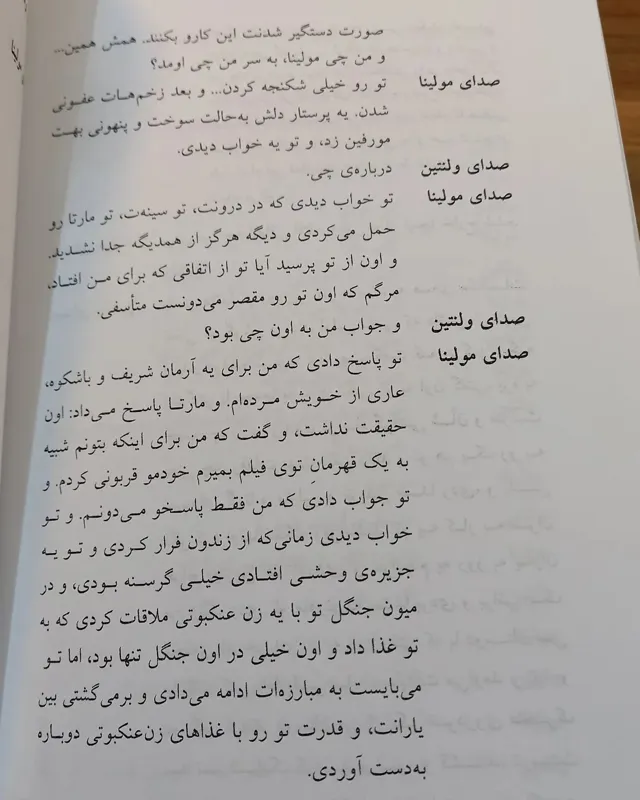 صورت دستگیر شدنت این کارو بکنند. همش همین...
و من چی مولینا، به سر من چی اومد؟
صدای مولینا تو رو خیلی شکنجه کردن... و بعد زخم‌هات عفونی
شدن. یه پرستار دلش به‌حالت سوخت و پنهونی بهت
مورفین زد، و تو یه خواب دیدی.
صدای ولنتین درباره‌ی چی.
صدای مولینا تو خواب دیدی که در درونت، تو سینه‌ت، تو مارتا رو
حمل می‌کردی و دیگه هرگز از همدیگه جدا نشدید.
و اون از تو پرسید آیا تو از اتفاقی که برای من افتاد،
مرگم که اون تو رو مقصر می‌دونست متأسفی.
صدای ولنتین و جواب من به اون چی بود؟
صدای مولینا تو پاسخ دادی که من برای یه آرمان شریف و باشکوه،
عاری از خویش مرده‌ام. و مارتا پاسخ می‌داد: اون
حقیقت نداشت، و گفت که من برای اینکه بتونم شبیه
به یک قهرمانِ توی فیلم بمیرم خودمو قربونی کردم. و
تو جواب دادی که من فقط پاسخو می‌دونم. و تو
خواب دیدی زمانی‌که از زندون فرار کردی و تو یه
جزیره‌ی وحشی افتادی خیلی گرسنه بودی، و در
میون جنگل تو با یه زن عنکبوتی ملاقات کردی که به
تو غذا داد و اون خیلی در اون جنگل تنها بود، اما تو
می‌بایست به مبارزه‌ات ادامه می‌دادی و برمی‌گشتی بین
یارانت، و قدرت تو رو با غذاهای زن‌عنکبوتی دوباره
به‌دست آوردی.